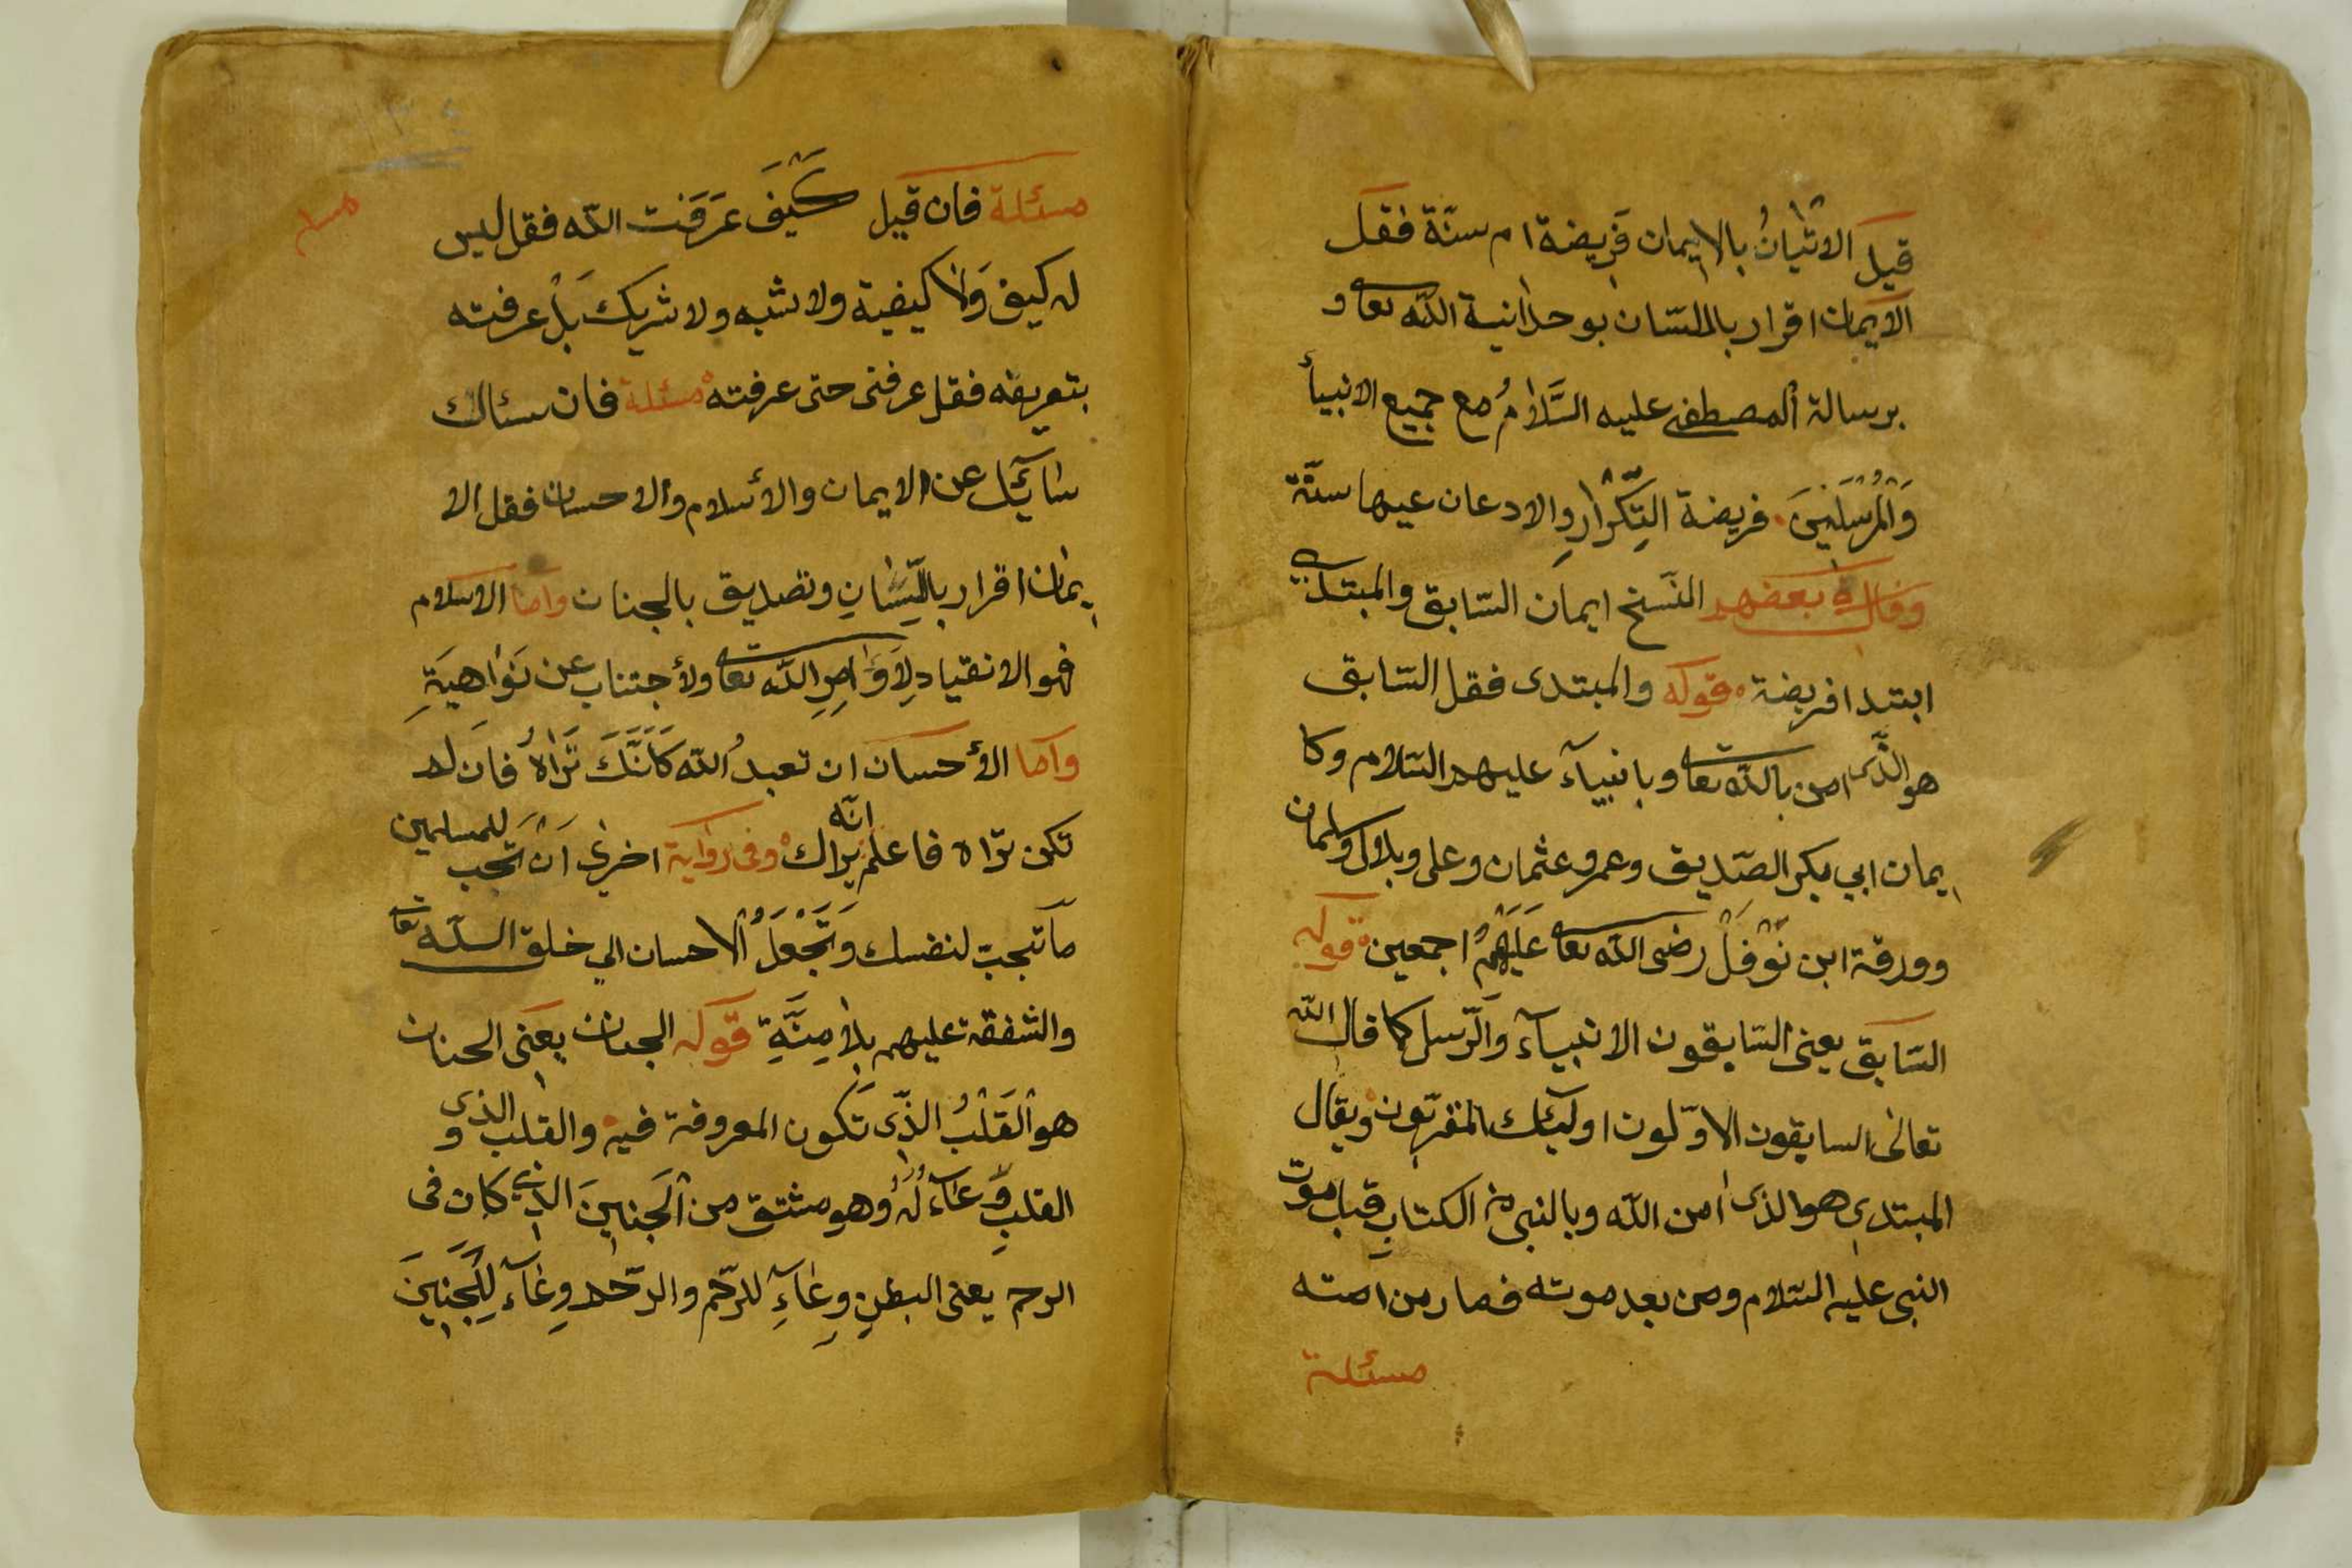 قيل الاتيانُ بالايمان فريضة ام سنّة فقل
الايمان اقرار باللسّان بوحدانية الله تعا و
برسالة المصطفى عليه السَّلامُ مع جميع الانبيأ
وَالْمُرْسَلِينَ فريضة التِّكْرارِ والادعان عيها سنّة
وقال بعضهم النَسخ ايمان السّابق والمبتدي
ابتدا فريضة قوله والمبتدى فقل السّابق
هو الذّى امن بالله تعا وبانبيآء عليهم السّلام وكا
يمان ابي بكر الصّديق وعمر وعثمان وعلى وبلال وسلمان
وورقة ابن نَوْفَلْ رضى الله تعا عَلَيْهِمْ اجمعين قوله
السّابق يعنى السّابقون الانبيآء والرّسل كما قال الله
تعالى السابقون الاوّلون اولئك المقرّبون ويقال
المبتدى هو الذى امن الله وبالنبى من الكتابِ قبل موت
النبى عليه السّلام ومن بعد موته فصار من امته
مسئلة
مسئلة فان قيل كَيْفَ عَرَفْتَ الله فقل ليس
له كيف وَلا كيفية ولا شبه ولا شريك بَلْ عرفته
بتعريفه فقل عرفنى حتى عرفته مسئلة فان سئالك
سَائِلٌ عن الايمان والأسلام والاحسان فقل الا
يمان اقرار باللِّسَانِ وتصديق بالجنان واما الاسلام
فهو الانقياد لِاَوَامِرِ الله تعا ولأجتناب عن نَوَاهِيَةِ
واما الأحسان ان تعبدُ الله كَاَنَّكَ تَرَاهُ فان لم
تكن تراه فاعلم انّه يراك وفى رواية اخرى اَنْ تَحِبَّ للمسلمين
ما تحبّ لنفسك وَتَجْعَلَ الاحسان الى خلق الله تعا
والشفقة عليهم بلا مِنَّةٍ قوله الجنان يعنى الجنان
هو الْقَلْبُ الذّى تَكون المعروفة فيه والقلب الذى و
القلبِ وِعَآءٌ لَهُ وهو مشتق من الْجَنِينَ الذى كان فى
الرحم يعنى البطنِ وِعَآءِ للرّحم والرّحم وِعَآء لِلْجَنِينَ